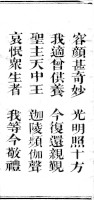 容顏甚奇妙　光明照十方
我適曾供養　今復還親覲
聖主天中王　迦陵頻伽聲
哀愍眾生者　我等今敬禮